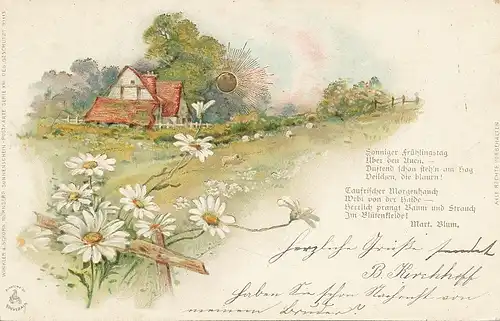 Sonniger Frühlingstag
Über den Auen, —
Duftend schon stehn am Hag
Veilchen, die blauen!
Taufrischer Morgenhauch
Webt von der Haide —
Herrlich prangt Baum und Strauch
Im Blütenkleide!
Mart. Blum,
herzliche Grüße sendet
B. Kerchhoff
Haben Sie schon Nachricht von
meinem Bruder?